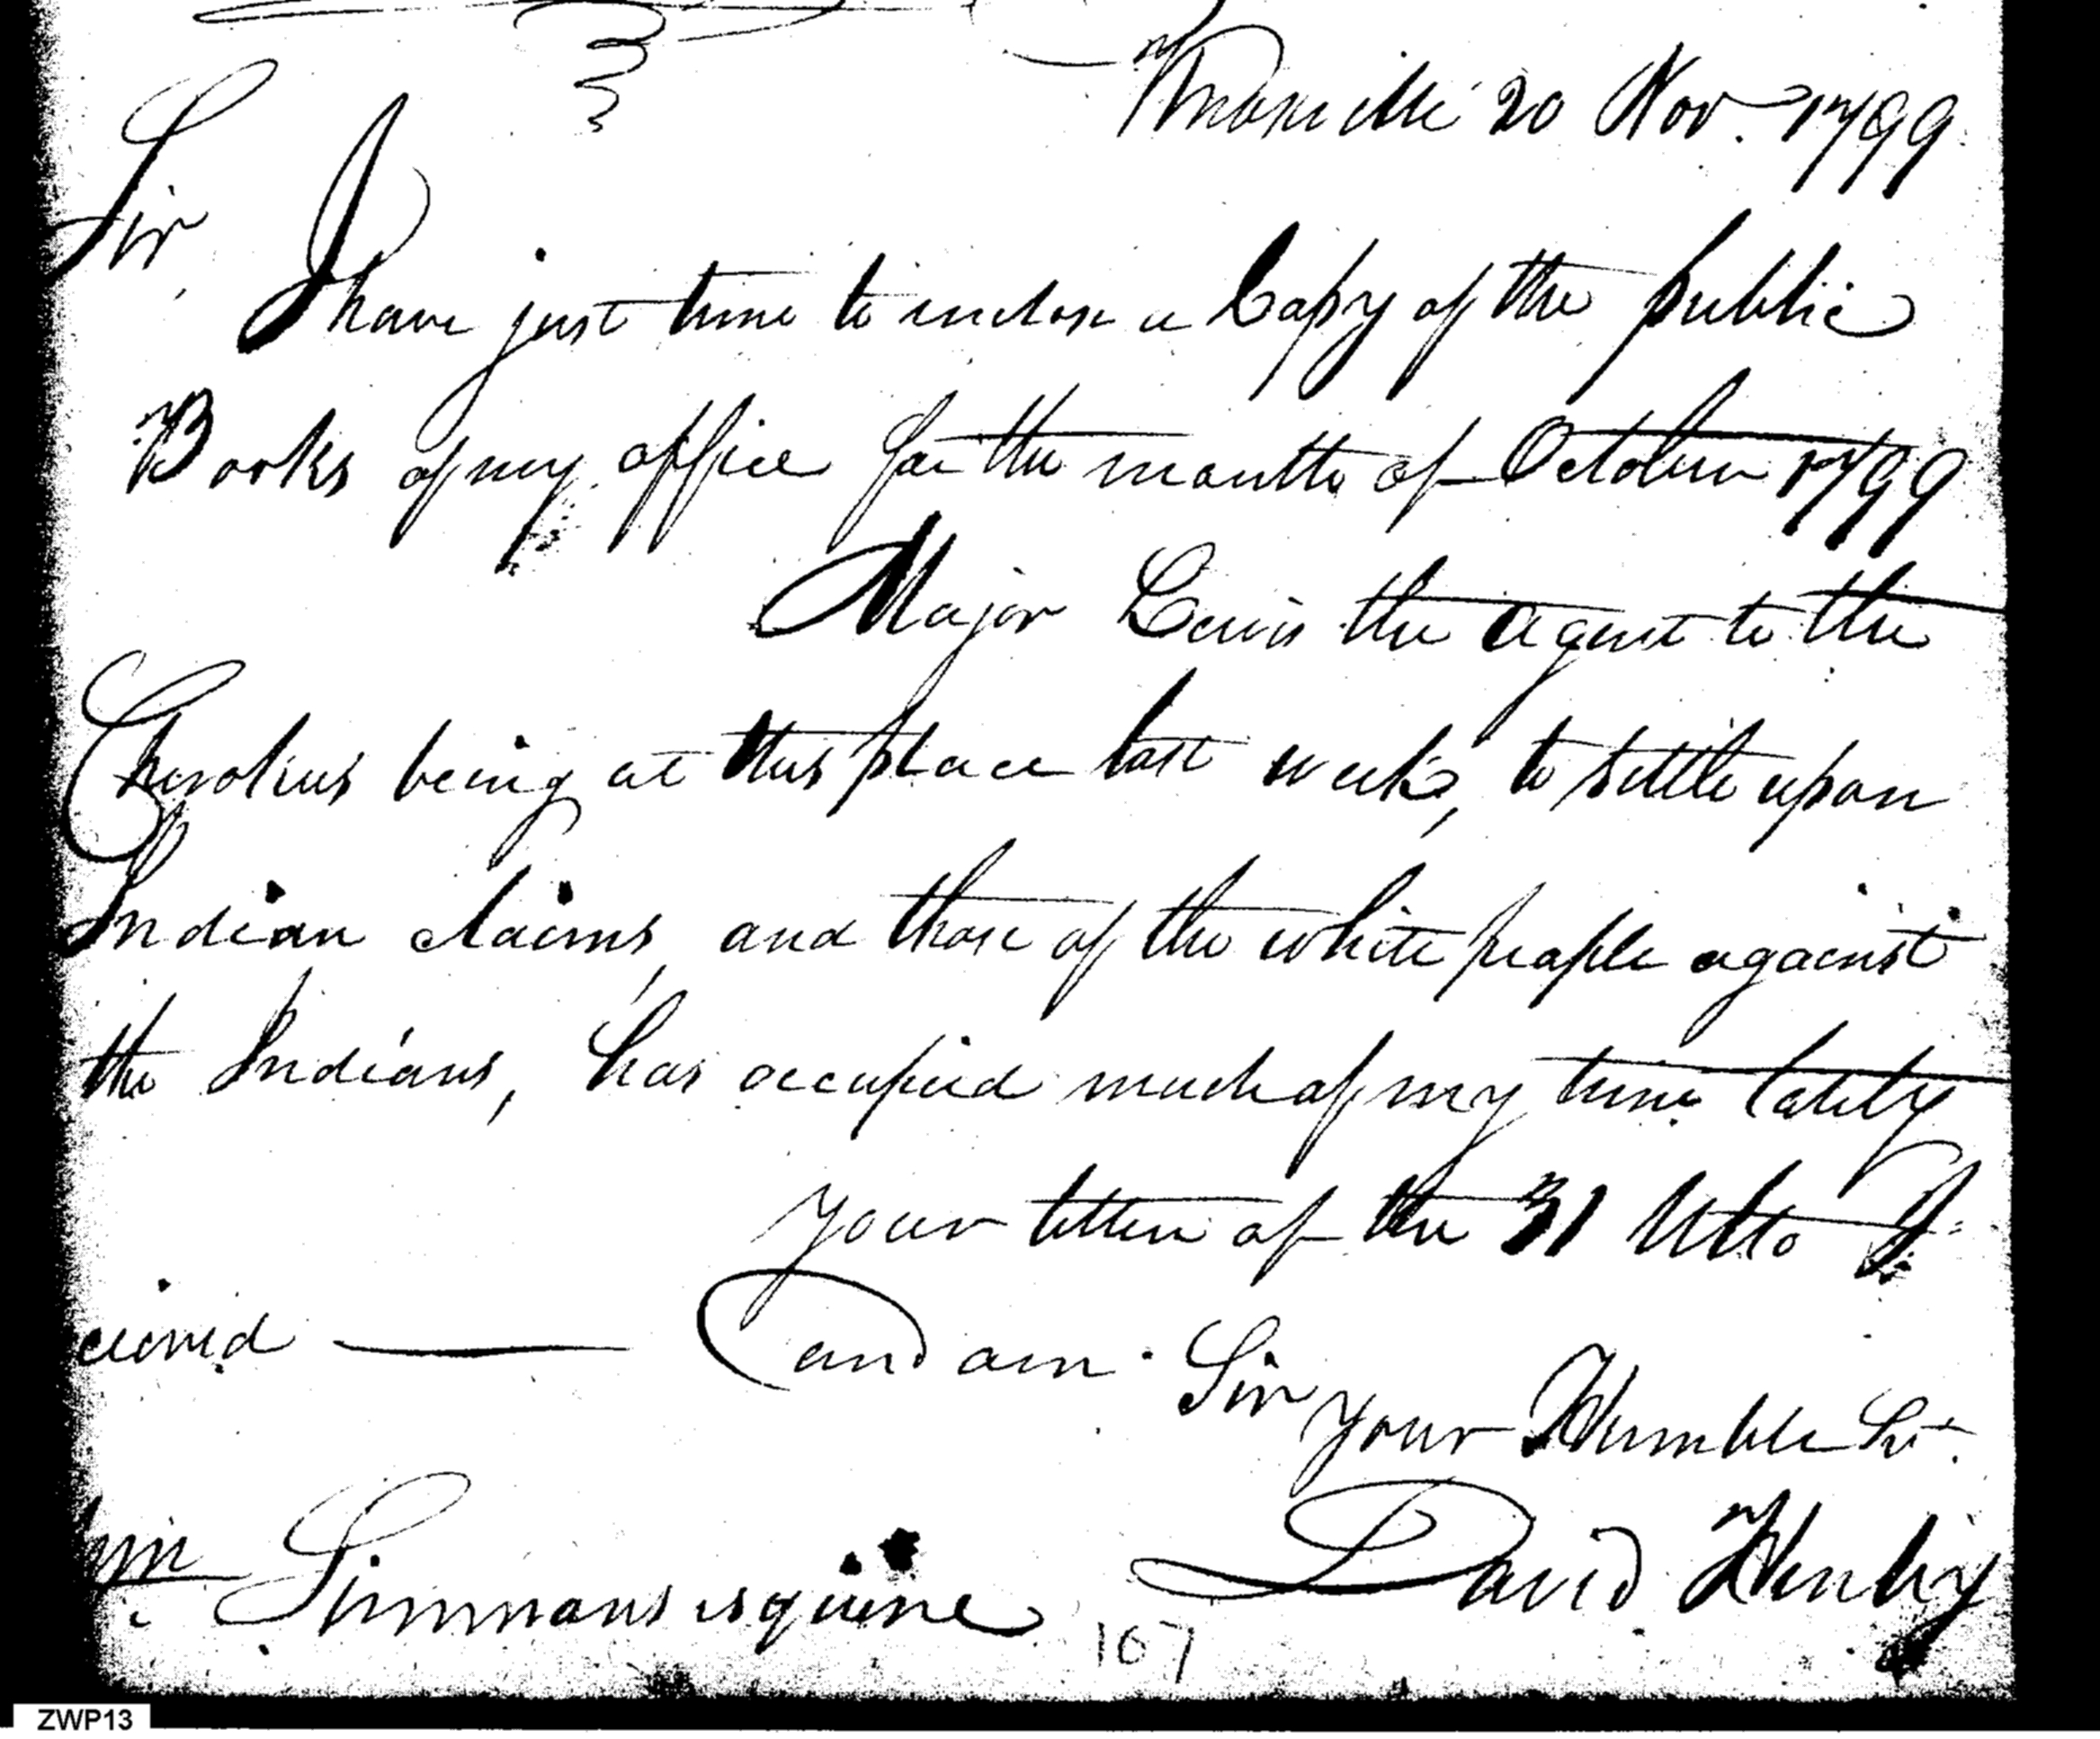 Knoxville 20 Nov. 1799
Sir,
I have just time to inclose a Copy of the public
Books of my office for the month of October 1799
Major Lewis the agent to the
Cherokees being at this place last week, to settle upon
Indian claims, and those of the white people against
the Indians, has occupied much of my time lately
Your letter of the 31 Ulto
ceived — and am Sir
your Humble Svt.
Wm Simmons esquire David Henley
107
ZWP13